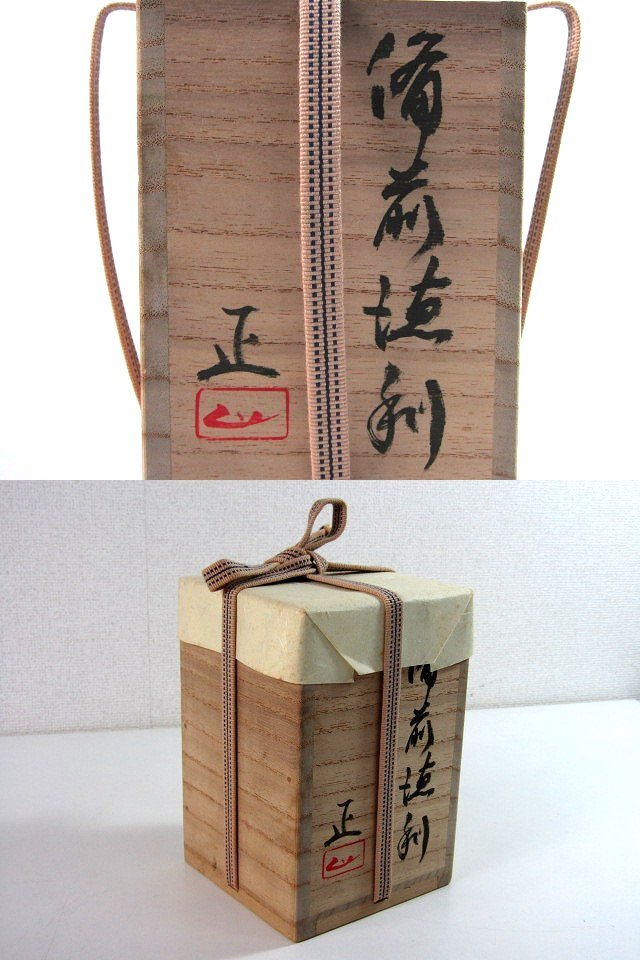 備前徳利
正
備前徳利
正